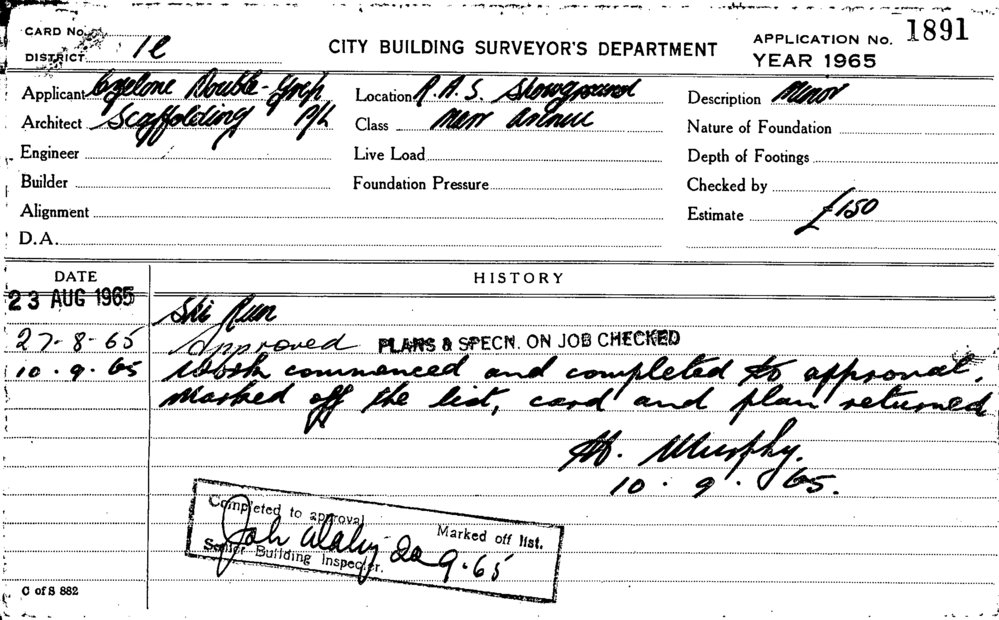 CARD No.
DISTRICT 1e
CITY BUILDING SURVEYOR'S DEPARTMENT
APPLICATION No. 1891
YEAR 1965
Applicant Cyclone Double-Grip
Architect Scaffolding P/L
Engineer
Builder
Alignment
D.A.
Location R.A.S. Showground
Class New Avenue
Live Load
Foundation Pressure
Description Minor
Nature of Foundation
Depth of Footings
Checked by
Estimate £150
DATE HISTORY
23 AUG 1965 Ski Run
27-8-65 Approved PLANS & SPECN. ON JOB CHECKED
10.9.65 Work commenced and completed to approval.
Marked off the list, card and plan returned
Murphy.
10.9.65.
Completed to approval
Marked off list.
Senior Building Inspector.
20.9.65
C of S 882